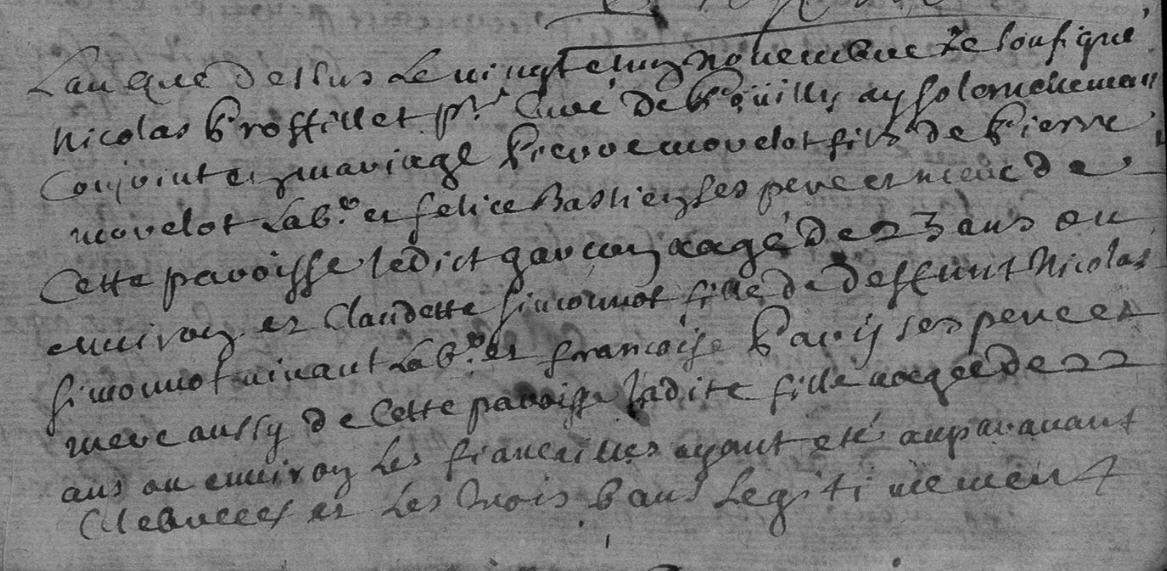 Lan que dessus Le vingt cinq novembre Ie soussigné
Nicolas Proffillet p.bre Curé de Poüilly ay solemnellemant
Conjoint en mariage Pierre morelot fils de Pierre
morelot Lab.r et felice Bastien ses pere et mere de
Cette paroisse ledict garcon aagé de 23 ans ou
environ et Claudette Simonnot fille de deffunt Nicolas
Simonnot vivant Lab.r et francoise Parij ses pere et
mere aussy de Cette paroisse ladite fille aagée de 22
ans ou environ Les fiancailles ayant eté auparavant
Celebrees et Les trois bans Legitimement